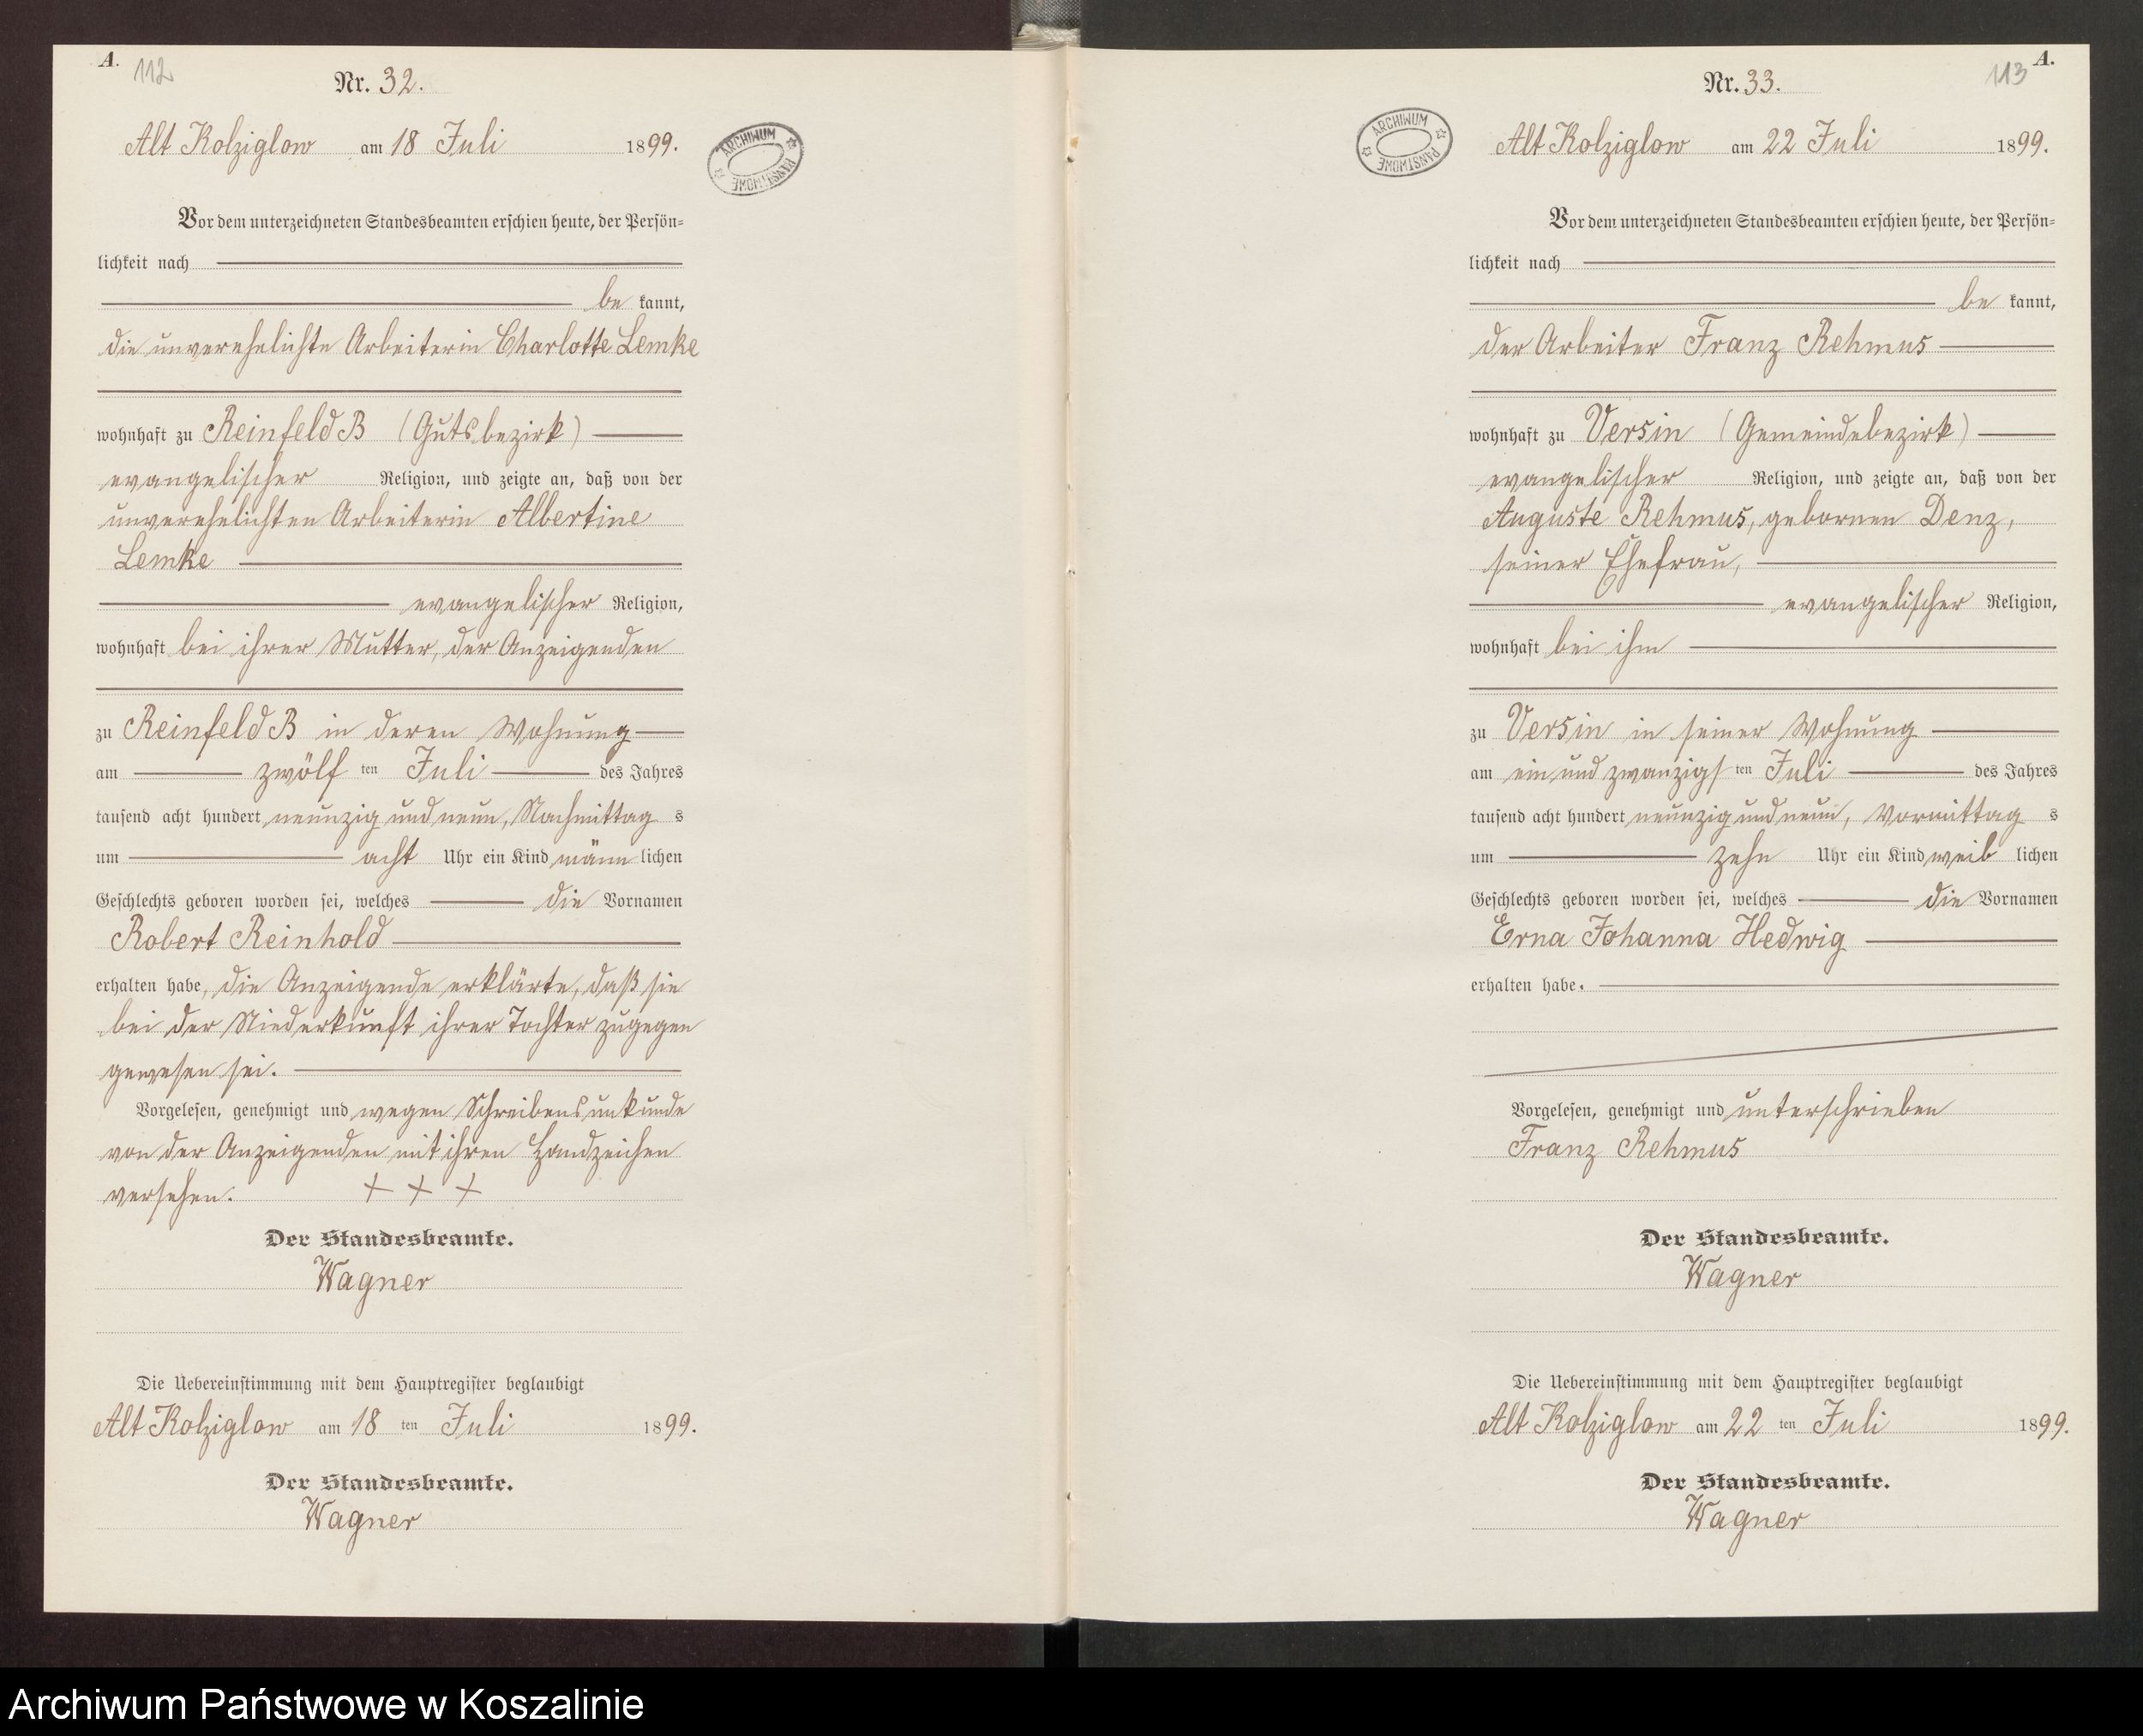 A.
112
Nr. 32.
Alt Kolziglow am 18 Juli 1899.
ARCHIWUM PAŃSTWOWE
Vor dem unterzeichneten Standesbeamten erschien heute, der Persön-
lichkeit nach
be kannt,
die unverehelichte Arbeiterin Charlotte Lemke
wohnhaft zu Reinfeld B (Gutsbezirk)
evangelischer Religion, und zeigte an, daß von der
unverehelichten Arbeiterin Albertine
Lemke
evangelischer Religion,
wohnhaft bei ihrer Mutter, der Anzeigenden
zu Reinfeld B in deren Wohnung
am zwölf ten Juli des Jahres
tausend acht hundert neunzig und neun, Nachmittag s
um acht Uhr ein Kind männ lichen
Geschlechts geboren worden sei, welches die Vornamen
Robert Reinhold
erhalten habe, die Anzeigende erklärte, daß sie
bei der Niederkunft ihrer Tochter zugegen
gewesen sei.
Vorgelesen, genehmigt und wegen Schreibensunkunde
von der Anzeigenden mit ihren Handzeichen
versehen. + + +
Der Standesbeamte.
Wagner
Die Uebereinstimmung mit dem Hauptregister beglaubigt
Alt Kolziglow am 18 ten Juli 1899.
Der Standesbeamte.
Wagner
A.
113
Nr. 33.
ARCHIWUM PAŃSTWOWE
Alt Kolziglow am 22 Juli 1899.
Vor dem unterzeichneten Standesbeamten erschien heute, der Persön-
lichkeit nach
be kannt,
der Arbeiter Franz Rehmus
wohnhaft zu Versin (Gemeindebezirk)
evangelischer Religion, und zeigte an, daß von der
Auguste Rehmus, gebornen Denz,
seiner Ehefrau,
evangelischer Religion,
wohnhaft bei ihm
zu Versin in seiner Wohnung
am ein und zwanzigs ten Juli des Jahres
tausend acht hundert neunzig und neun, Vormittag s
um zehn Uhr ein Kind weib lichen
Geschlechts geboren worden sei, welches die Vornamen
Erna Johanna Hedwig
erhalten habe.
Vorgelesen, genehmigt und unterschrieben
Franz Rehmus
Der Standesbeamte.
Wagner
Die Uebereinstimmung mit dem Hauptregister beglaubigt
Alt Kolziglow am 22 ten Juli 1899.
Der Standesbeamte.
Wagner
Archiwum Państwowe w Koszalinie